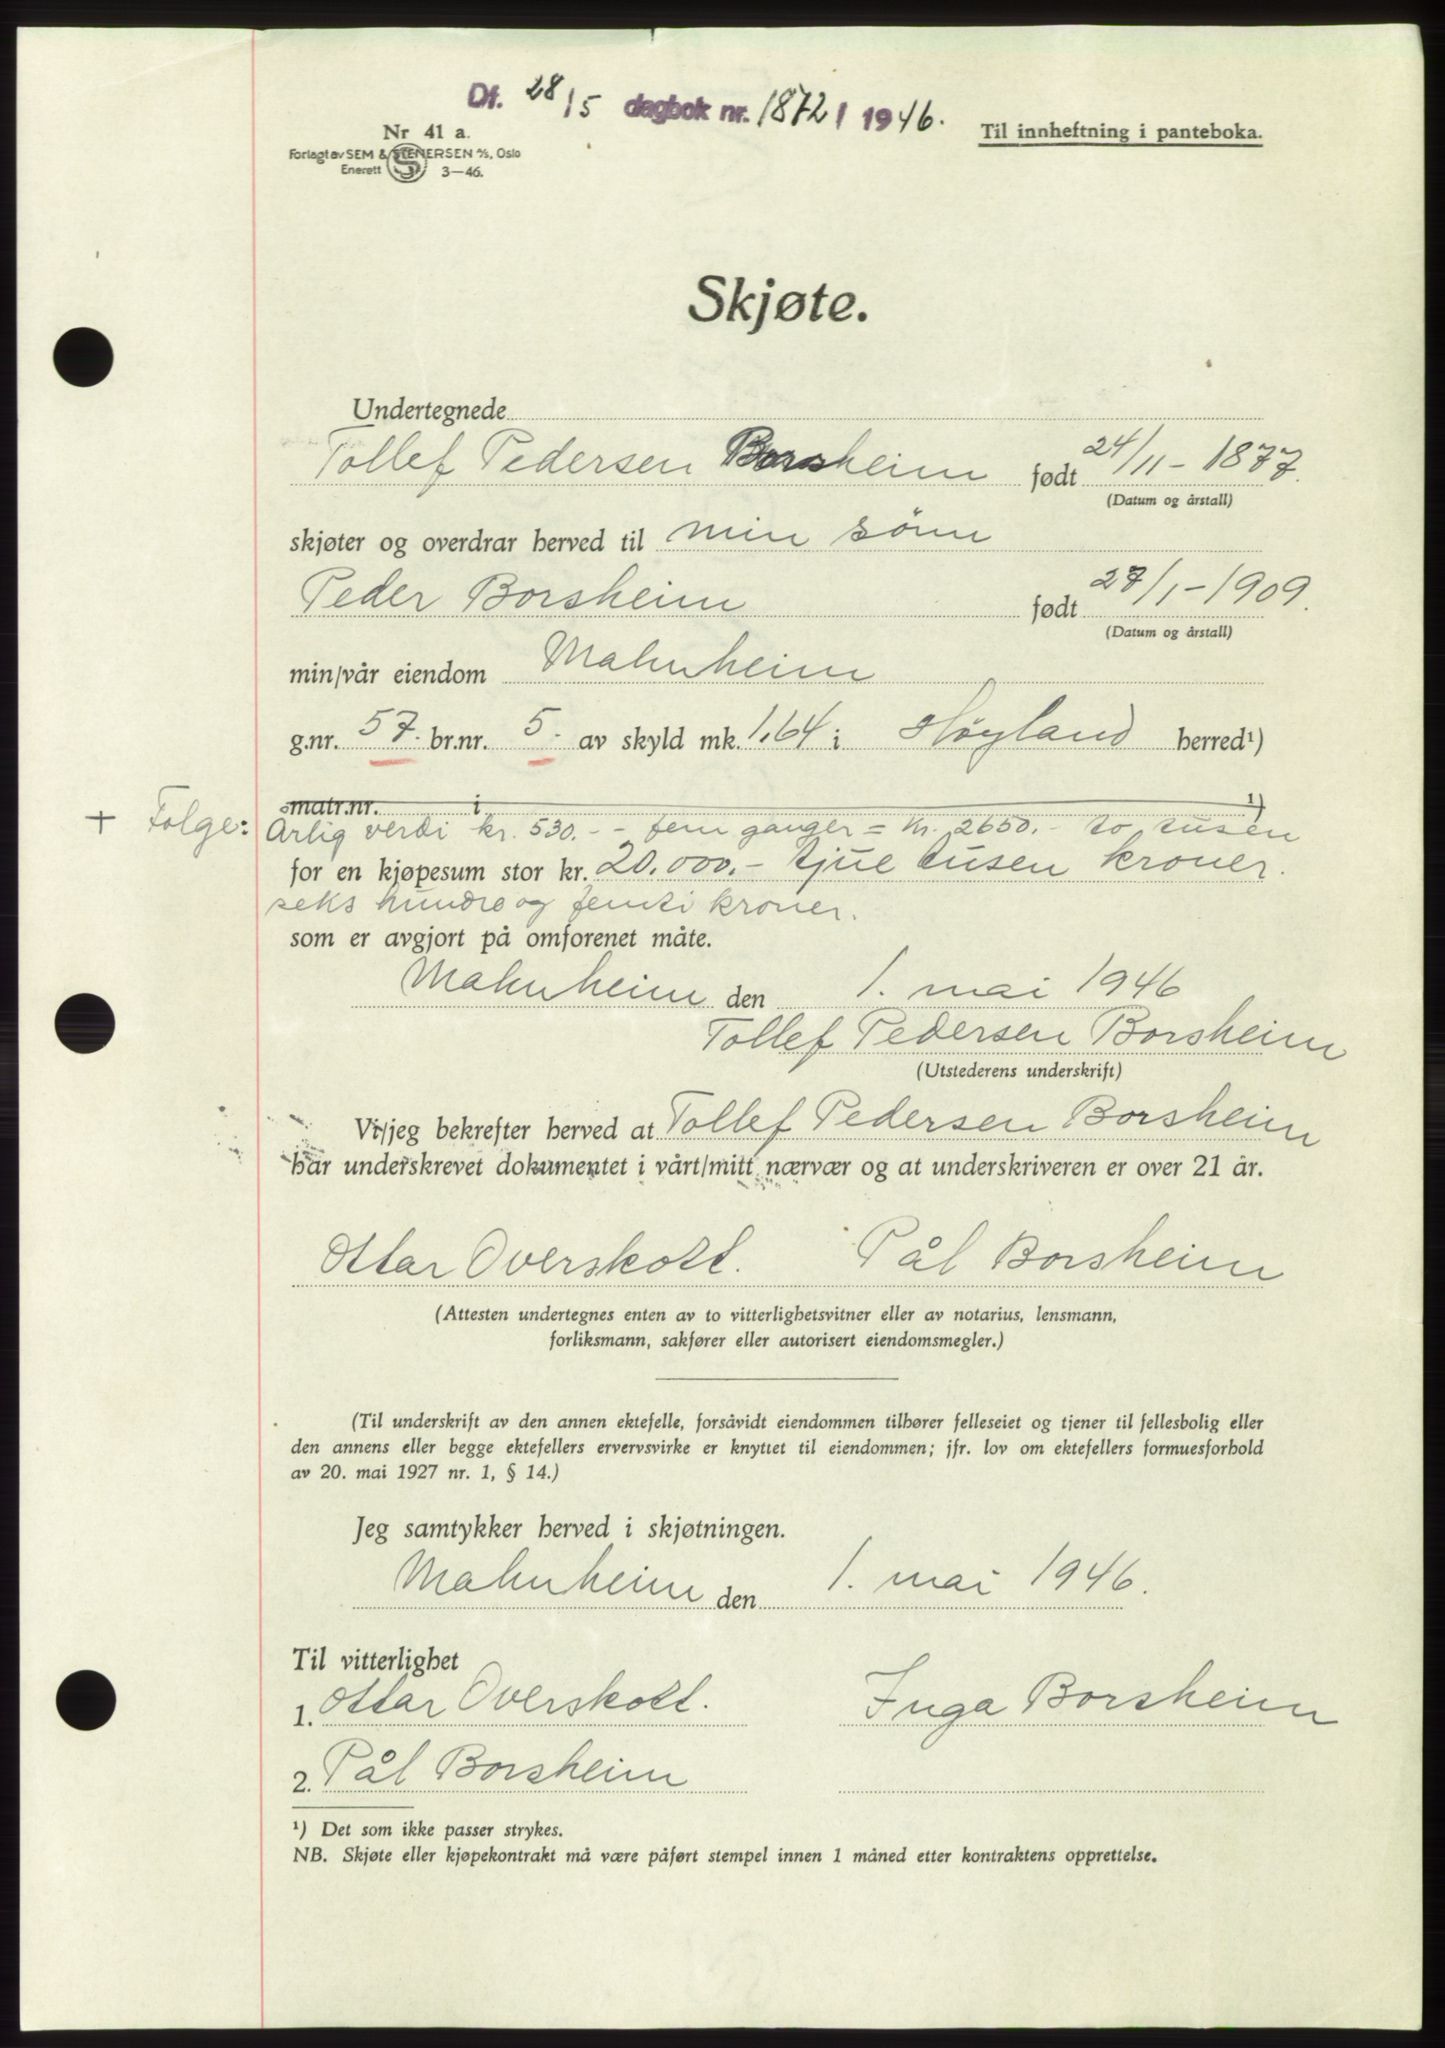 Df. 28/5 dagbok nr. 1872/1946.
Nr 41 a.
Forlagt av SEM & STENERSEN A/S, Oslo
Enerett S 3-46.
Til innheftning i panteboka.
Skjøte.
Undertegnede
Tollef Pedersen Borsheim født 24/11-1877.
(Datum og årstall)
skjøter og overdrar herved til min sönn
Peder Borsheim født 27/1-1909.
(Datum og årstall)
min/vår eiendom Mahnheim
g.nr. 57. br.nr. 5. av skyld mk. 1.64 i Høyland herred¹)
matr.nr. i ¹)
+ Følge: Årlig verdi kr. 530.- - fem ganger = Kr. 2650.- to tusen
for en kjøpesum stor kr. 20.000.- tjue tusen kroner.
seks hundre og femti kroner.
som er avgjort på omforenet måte.
Mahnheim den 1. mai 1946
Tollef Pedersen Borsheim
(Utstederens underskrift)
Vi/jeg bekrefter herved at Tollef Pedersen Borsheim
har underskrevet dokumentet i vårt/mitt nærvær og at underskriveren er over 21 år.
Ottar Overskott. Pål Borsheim
(Attesten undertegnes enten av to vitterlighetsvitner eller av notarius, lensmann,
forliksmann, sakfører eller autorisert eiendomsmegler.)
(Til underskrift av den annen ektefelle, forsåvidt eiendommen tilhører felleseiet og tjener til fellesbolig eller
den annens eller begge ektefellers ervervsvirke er knyttet til eiendommen; jfr. lov om ektefellers formuesforhold
av 20. mai 1927 nr. 1, § 14.)
Jeg samtykker herved i skjøtningen.
Mahnheim den 1. mai 1946.
Til vitterlighet
1. Ottar Overskott. Inga Borsheim
2. Pål Borsheim
¹) Det som ikke passer strykes.
NB. Skjøte eller kjøpekontrakt må være påført stempel innen 1 måned etter kontraktens opprettelse.